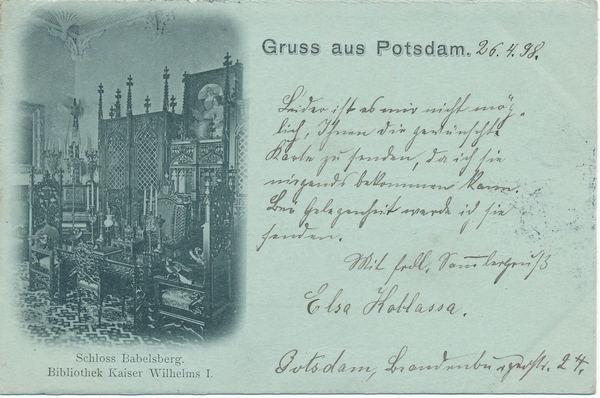 Gruss aus Potsdam. 26.4.98.
Leider ist es mir nicht mög-
lich, Ihnen die gewünschte
Karte zu senden, da ich sie
nirgends bekommen kann.
Bei Gelegenheit werde ich sie
senden.
Mit frdl. Sammlergruß
Elsa Koblassa.
Potsdam, Brandenburgerstr. 24.
Schloss Babelsberg.
Bibliothek Kaiser Wilhelms I.